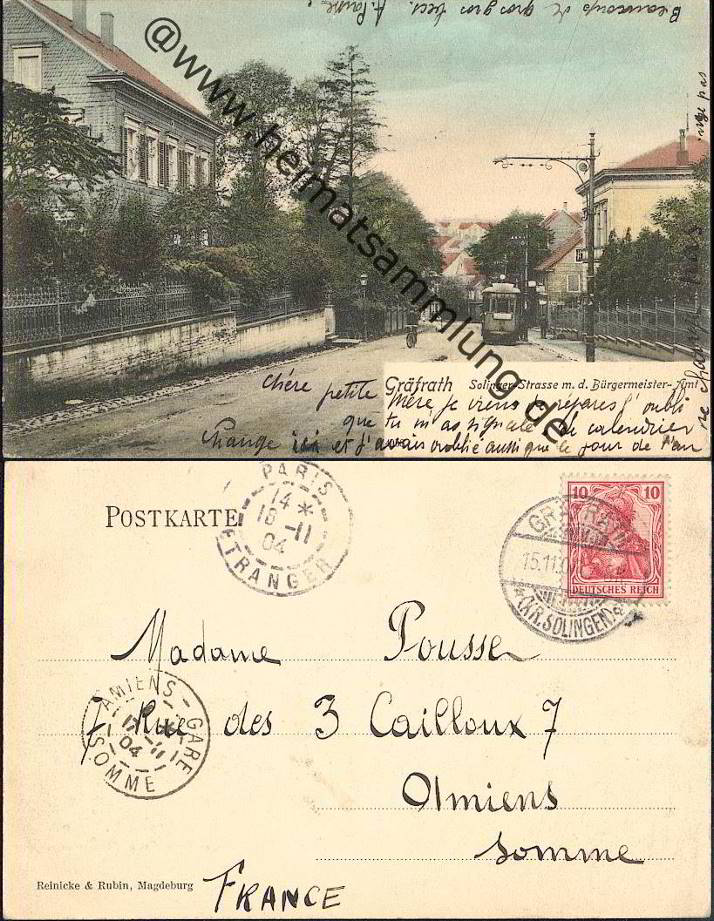 Beaucoup de gros gros becs. A. Pousse.
@www.heimatsammlung.de
Gräfrath Solinger-Strasse m. d. Bürgermeister-Amt
Chère petite Mère, je viens de réparer l'oubli
que tu m'as signalé de calendrier
Change ici et j'avais oublié aussi que le jour de l'an
ne change pas
POSTKARTE
PARIS
14 *
18 -11
04
ETRANGER
10 10
DEUTSCHES REICH
GRÄFRATH
15.11.04
*(KR. SOLINGEN)*
Madame Pousse
7 Rue des 3 Cailloux 7
Amiens
Somme
FRANCE
AMIENS - GARE
17 -11
04
SOMME
Reinicke & Rubin, Magdeburg